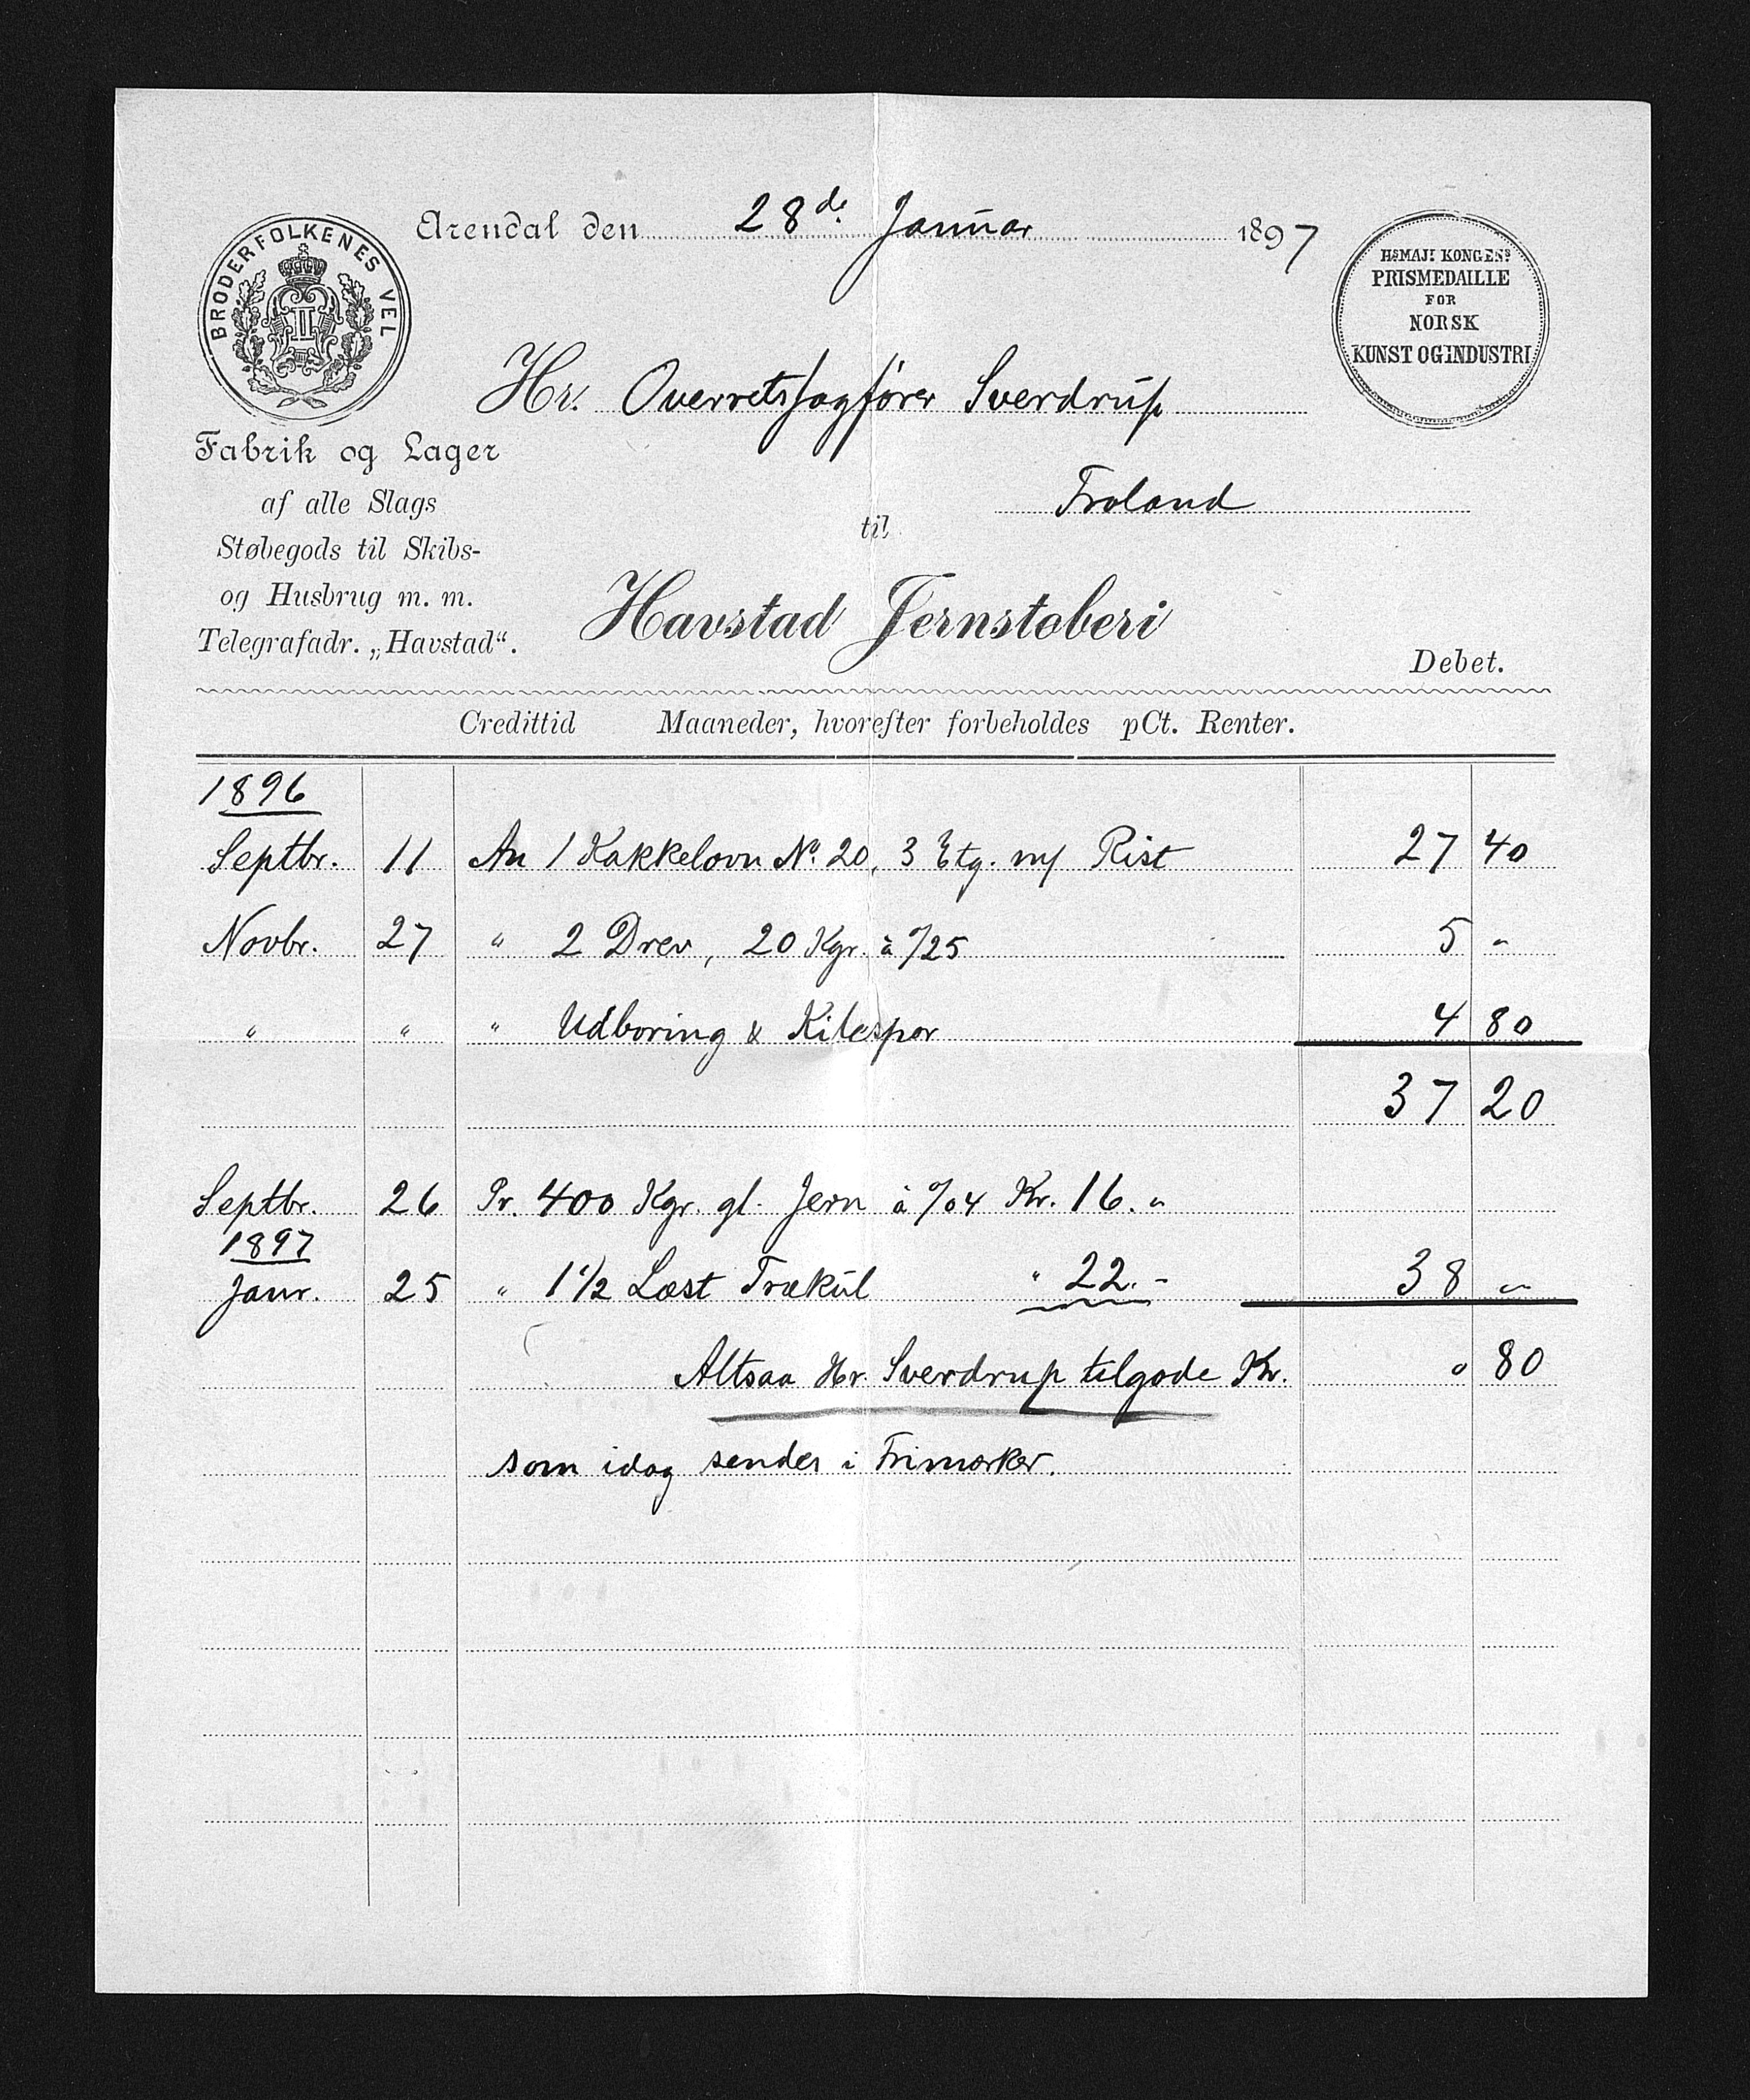 Arendal den 28de Januar 1897
BRODERFOLKENES VEL
II
Hs MAJt KONGENS
PRISMEDAILLE
FOR
NORSK
KUNST OG INDUSTRI
Hr. Overretssagfører Sverdrup
Froland
til
Havstad Jernstøberi
Fabrik og Lager
af alle Slags
Støbegods til Skibs-
og Husbrug m. m.
Telegrafadr. „Havstad“.
Debet.
Credittid Maaneder, hvorefter forbeholdes pCt. Renter.
1896
Septbr. 11 An 1 Kakkelovn No. 20, 3 Etg. m/ Rist 27 40
Novbr. 27 " 2 Drev, 20 Kgr. à %25 5 "
" " " Udboring & Kilespor 4 80
37 20
Septbr. 26 Pr. 400 Kgr. gl. Jern à %04 Kr. 16. "
1897
Janr. 25 " 1 1/2 Læst Trækul " 22. - 38 "
Altsaa Hr. Sverdrup tilgode Kr. 0 80
som idag sendes i Frimærker.